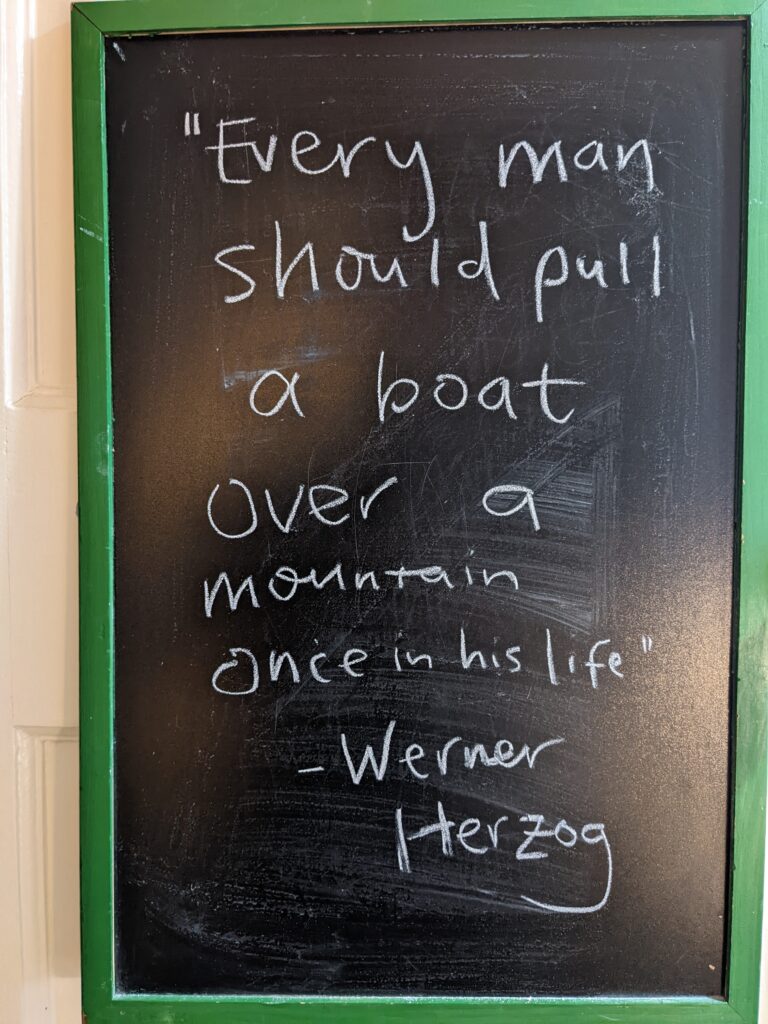 "Every man
should pull
a boat
over a
mountain
once in his life"
- Werner
Herzog